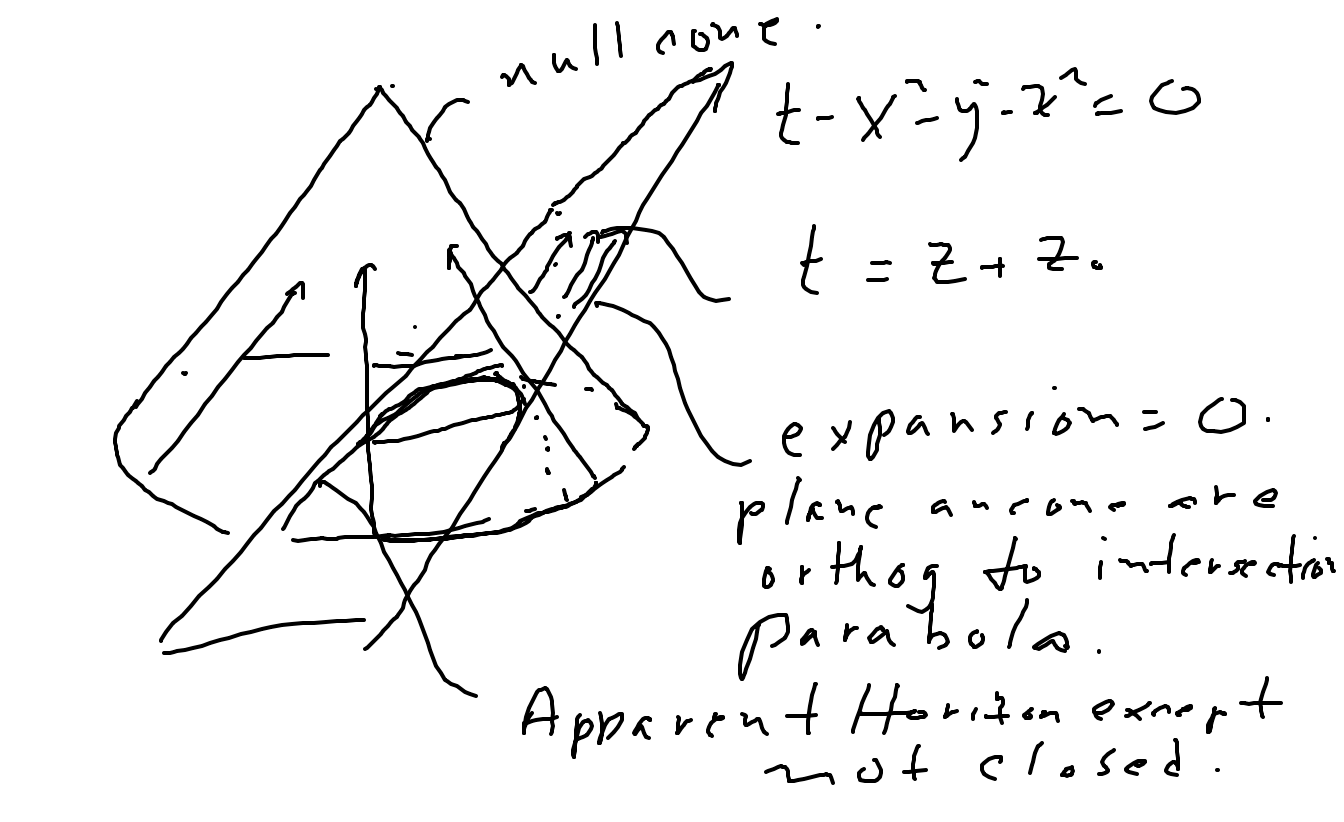 null cone.
t - x² - y² - z² = 0
t = z + z.
expansion = 0.
plane an cone are
orthog to intersection
parabola.
Apparent Horizon except
not closed.